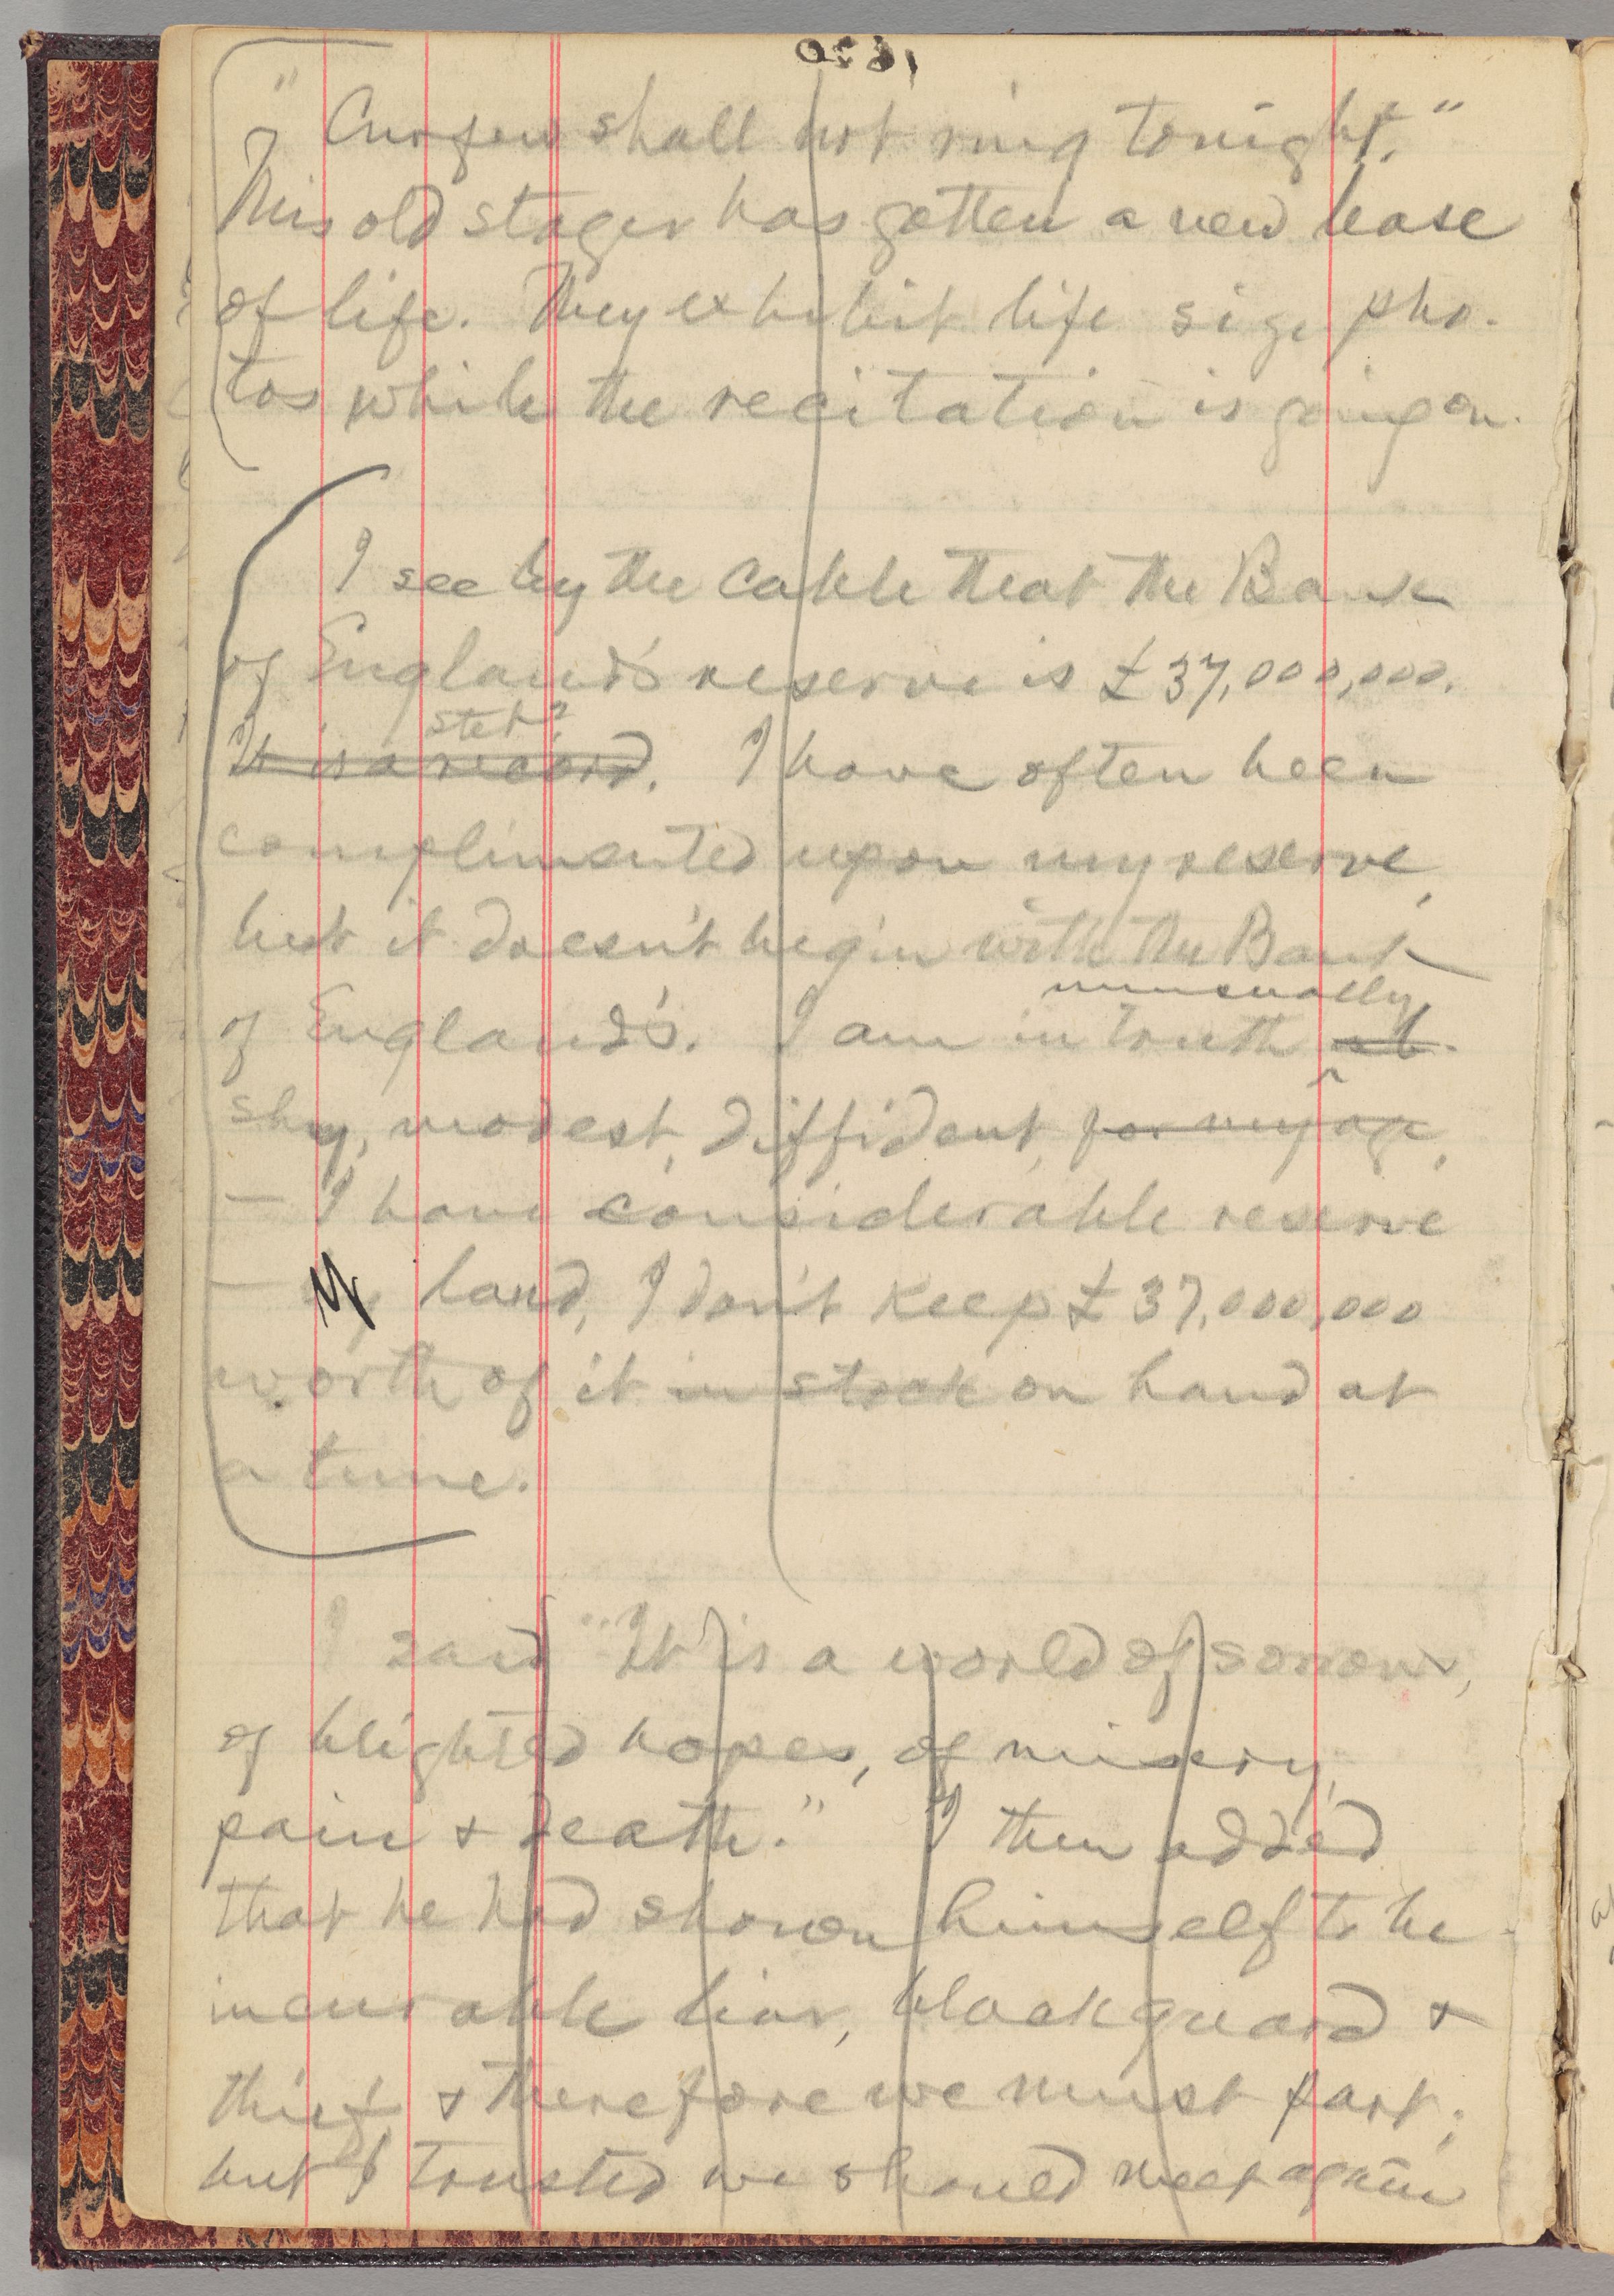 "Curfew shall not ring tonight."
This old stager has gotten a new lease
of life. They exhibit life size pho-
tos while the recitation is going on.
I see by the cable that the Bank
of England's reserve is £37,000,000.
stet?
It is a record. I have often been
complimented upon my reserve,
but it doesn't begin with the Bank
unusually
of England's. I am in truth
shy, modest, diffident, for my age,
— I have considerable reserve
— My land, I don't keep £37,000,000
worth of it in stock on hand at
a time.
I said "It is a world of sorrow,
of blighted hopes, of misery,
pain & death." I then added
that he had shown himself to be
incurable liar, blackguard &
thief & therefore we must part;
but I trusted we should meet again